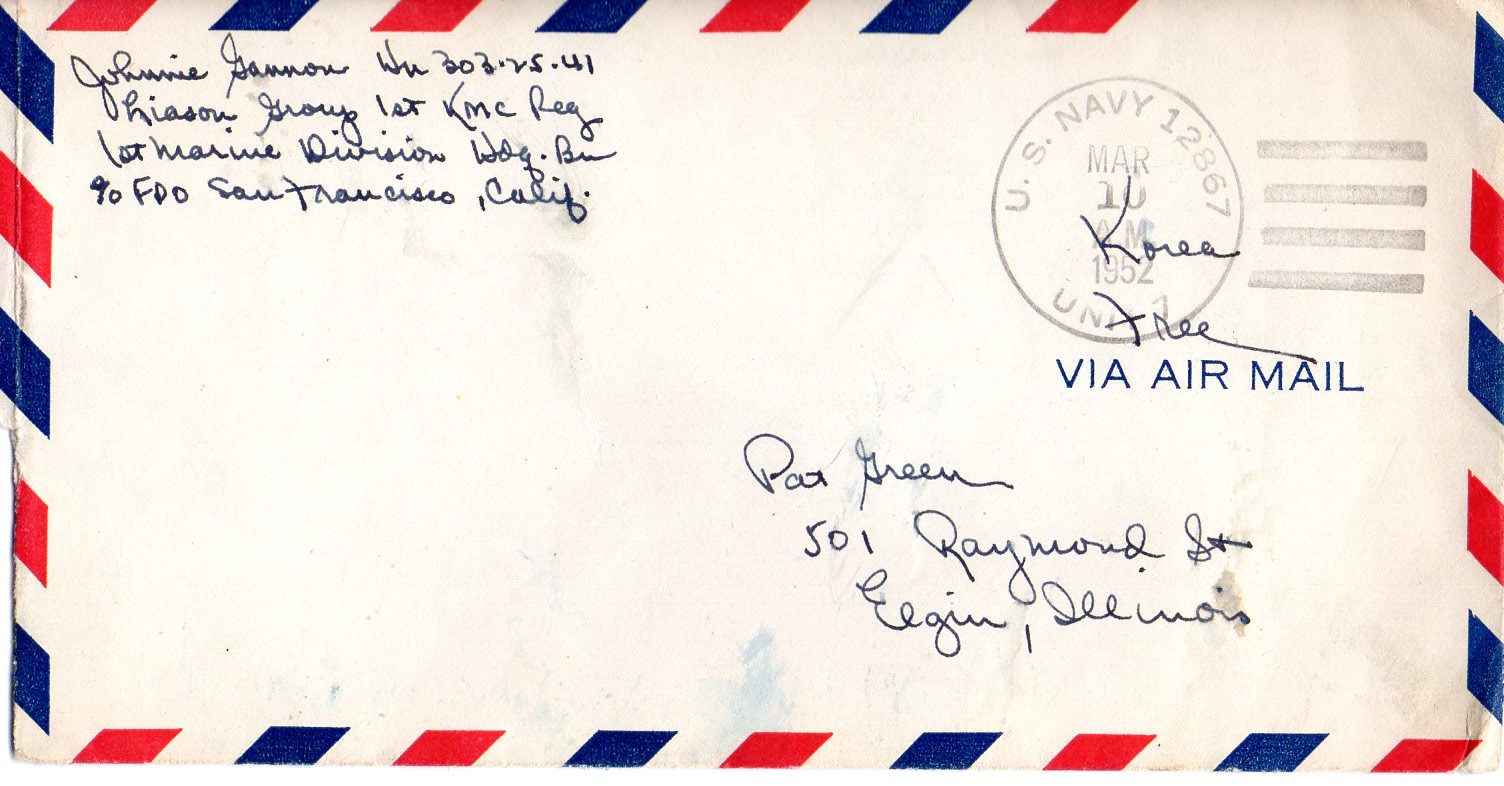 Johnnie Gannon Hn 303-25-41
Liason Group 1st KMC Reg
1st Marine Division Hdq. Bn
c/o FPO San Francisco, Calif.
U.S. NAVY 12867
MAR
10
A.M.
1952
UNIT 1
Korea
Free
VIA AIR MAIL
Pat Green
501 Raymond St
Elgin, Illinois